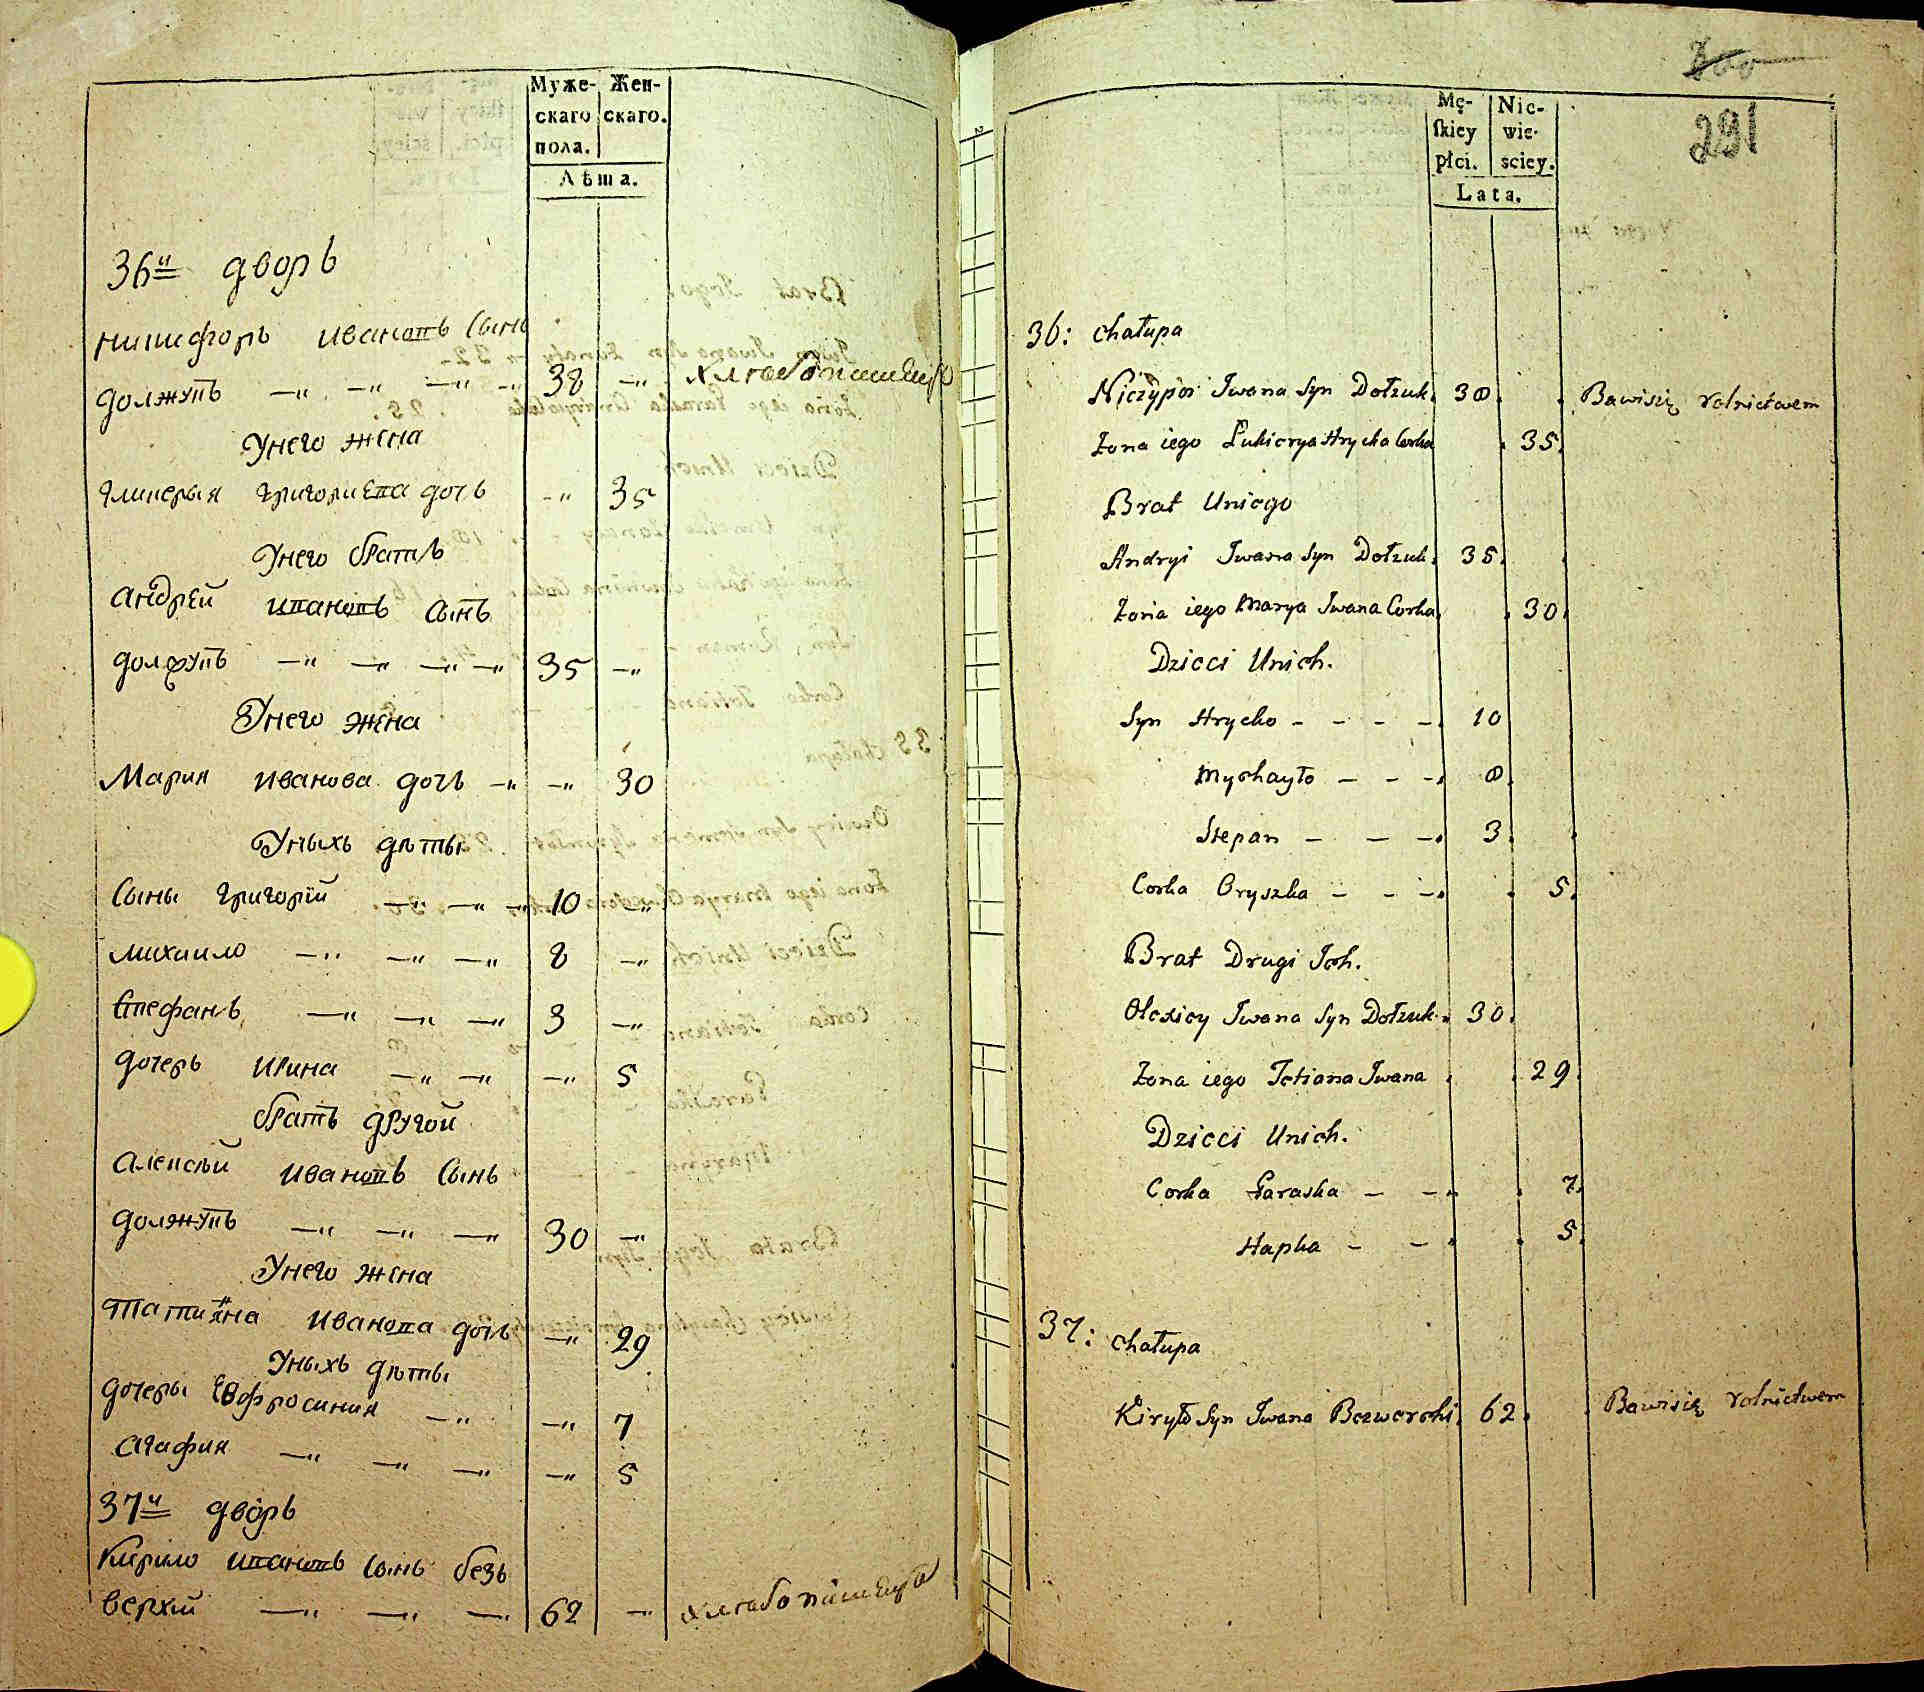 Муже- Жен-
скаго скаго.
пола.
Лѣта.
36й дворъ
Никифоръ Ивановъ Сынъ
Должукъ —„ —„ —„ —„ 38 —„ хлебопашецъ
Унего жена
Гликерыя Григориева дочь —„ 35
Унего братъ
Андрей Ивановъ сынъ
Должукъ —„ —„ —„ —„ 35 —„
Унего жена
Мария Иванова дочь —„ —„ 30
Уныхъ дѣты
Сыны Григорій —„ —„ —„ 10 —„
Михаило —„ —„ —„ 8 —„
Стефанъ —„ —„ —„ 3 —„
Дочерь Ирина —„ —„ —„ 5
братъ другой
Алексѣй Ивановъ Сынъ
Должукъ —„ —„ —„ 30 —„
Унего жена
Татияна Иванова дочь —„ 29
Уныхъ дѣты
Дочеры Евфросиния —„ —„ 7
Агафия —„ —„ —„ —„ 5
37й дворъ
Кирило Ивановъ сынъ безъ
верхий —„ —„ —„ 62 —„ хлебопашецъ
291
Mę- Nie-
skiey wie-
płci. sciey.
Lata.
36: Chałupa
Niczypor Jwana Syn Dołzuk. 38. Bawisię rolnictwem
Żona iego Łukierya Hrycka Corka 35.
Brat Uniego
Andryi Jwana Syn Dołzuk. 35.
Żona iego Marya Jwana Corka. 30.
Dzieci Unich.
Syn Hrycko - - - -. 10
Mychayło - - -. 8.
Stepan - - -. 3.
Corka Oryszka - - -. 5.
Brat Drugi Ich.
Olexiey Jwana Syn Dołzuk. 30.
Żona iego Tetiana Jwana . 29.
Dzieci Unich.
Corka Paraska - -. 7.
Hapka - -. 5.
37: Chałupa
Kiryło Syn Jwana Bezwerchi. 62. Bawisię rolnictwem